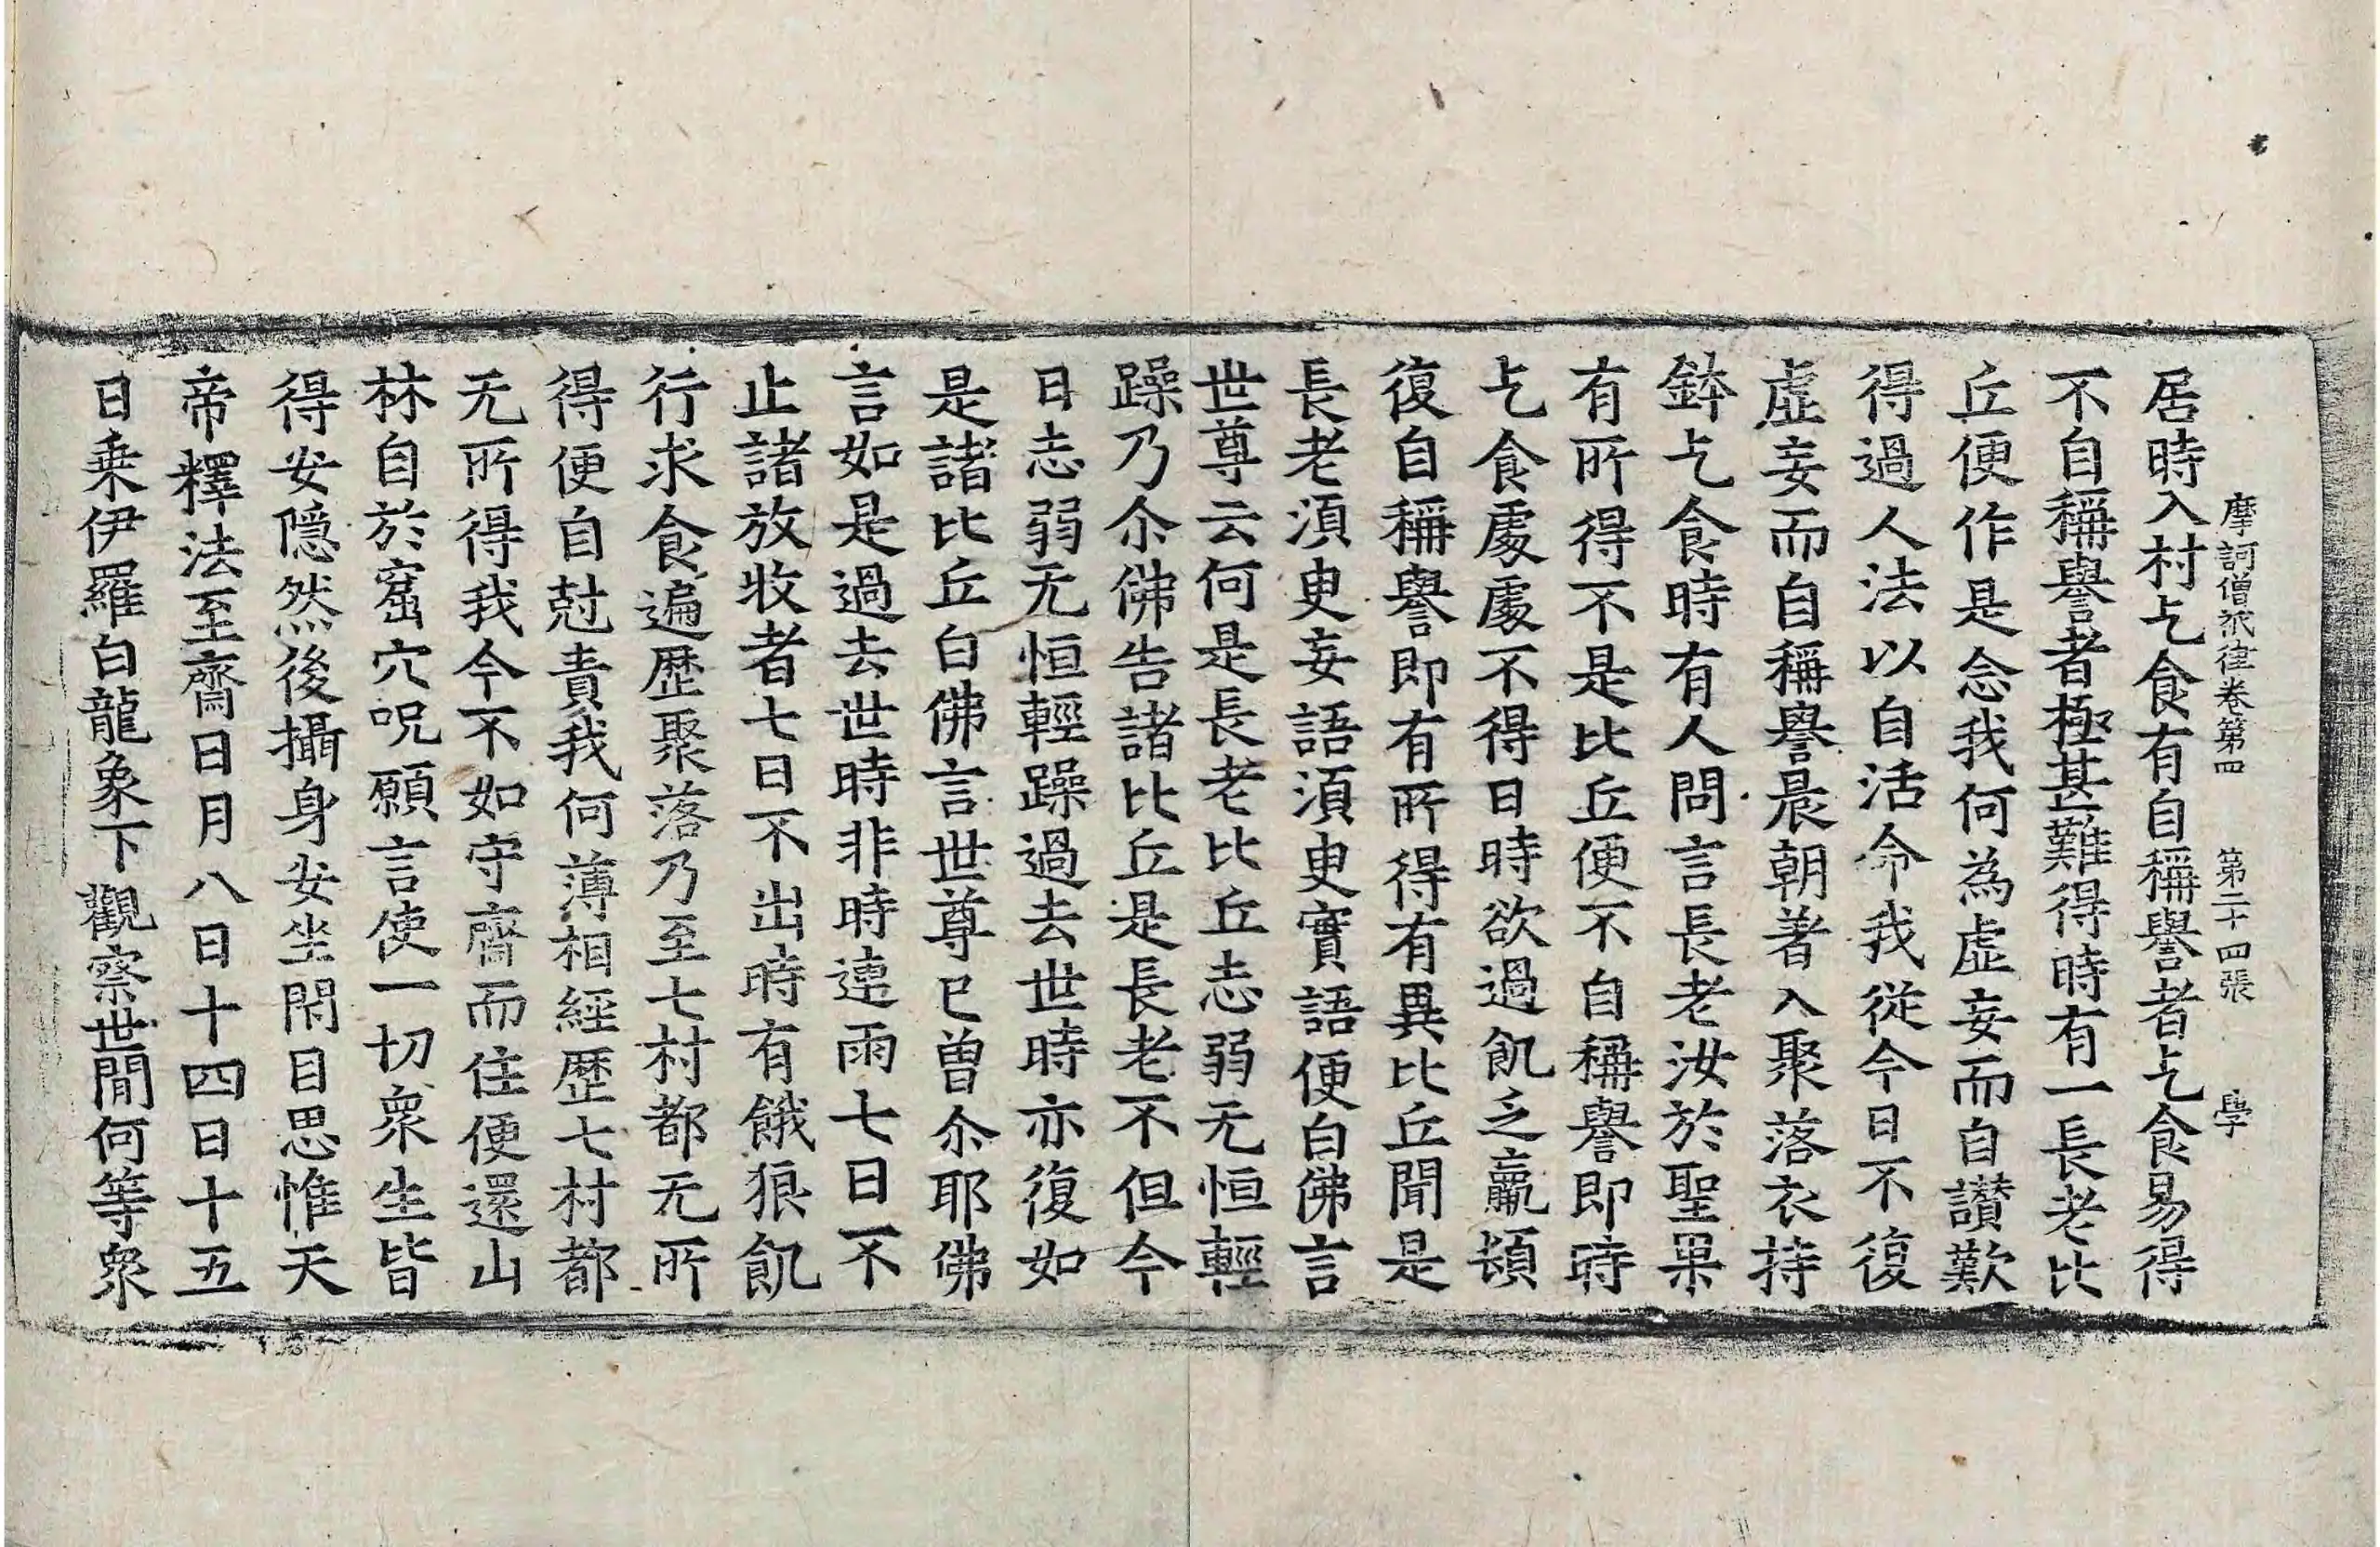 摩訶僧祇律卷第四　第二十四張　學
居時入村乞食有自稱譽者乞食易得
不自稱譽者極甚難得時有一長老比
丘便作是念我何為虛妄而自讚歎
得過人法以自活命我從今日不復
虛妄而自稱譽晨朝著入聚落衣持
鉢乞食時有人問言長老汝於聖果
有所得不是比丘便不自稱譽即時
乞食處處不得日時欲過飢乏羸頓
復自稱譽即有所得有異比丘聞是
長老湏臾妄語湏臾實語便白佛言
世尊云何是長老比丘志弱无恒輕
躁乃尒佛告諸比丘是長老不但今
日志弱无恒輕躁過去世時亦復如
是諸比丘白佛言世尊已曾尒耶佛
言如是過去世時非時連雨七日不
止諸放牧者七日不出時有餓狼飢
行求食遍歷聚落乃至七村都无所
得便自尅責我何薄相經歷七村都
无所得我今不如守齋而住便還山
林自於窟穴呪願言使一切衆生皆
得安隱然後攝身安坐閇目思惟天
帝釋法至齋日月八日十四日十五
日乗伊羅白龍象下觀察世間何等衆